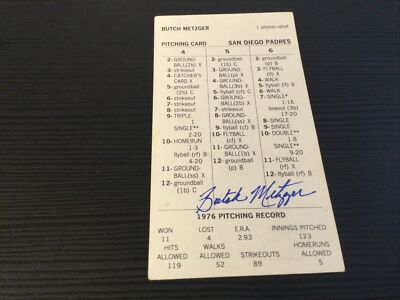 BUTCH METZGER 1 pitcher-relief
PITCHING CARD SAN DIEGO PADRES
4 5 6
2- GROUND- 2- groundball 2- GROUND-
BALL(2b) X (1b) C BALL(p) X
3- strikeout 3- GROUND- 3- FLYBALL
4- CATCHER'S BALL(p) X (lf) X
CARD X 4- GROUND- 4- WALK
5- groundball BALL(3b) X 5- strikeout
(2b) C 5- flyball (cf) C 6- WALK
6- strikeout 6- GROUND- 7- SINGLE*
7- strikeout BALL(2b) X 1-16
8- strikeout 7- strikeout lineout (3b)
9- TRIPLE 8- strikeout 17-20
1 9- flyball (cf) B 8- SINGLE
SINGLE** 10- flyball (rf) B 9- SINGLE
2-20 11- GROUND- 10- DOUBLE**
10- HOMERUN BALL(1b) X 1-8
1-3 12- groundball SINGLE**
flyball (rf) B (p) C 9-20
4-20 11- FLYBALL
11- GROUND- (rf) X
BALL(ss) X 12- flyball (lf) B
12- groundball
(1b) C
Butch Metzger
1976 PITCHING RECORD
WON LOST E.R.A. INNINGS PITCHED
11 4 2.93 123
HITS WALKS HOMERUNS
ALLOWED ALLOWED STRIKEOUTS ALLOWED
119 52 89 5